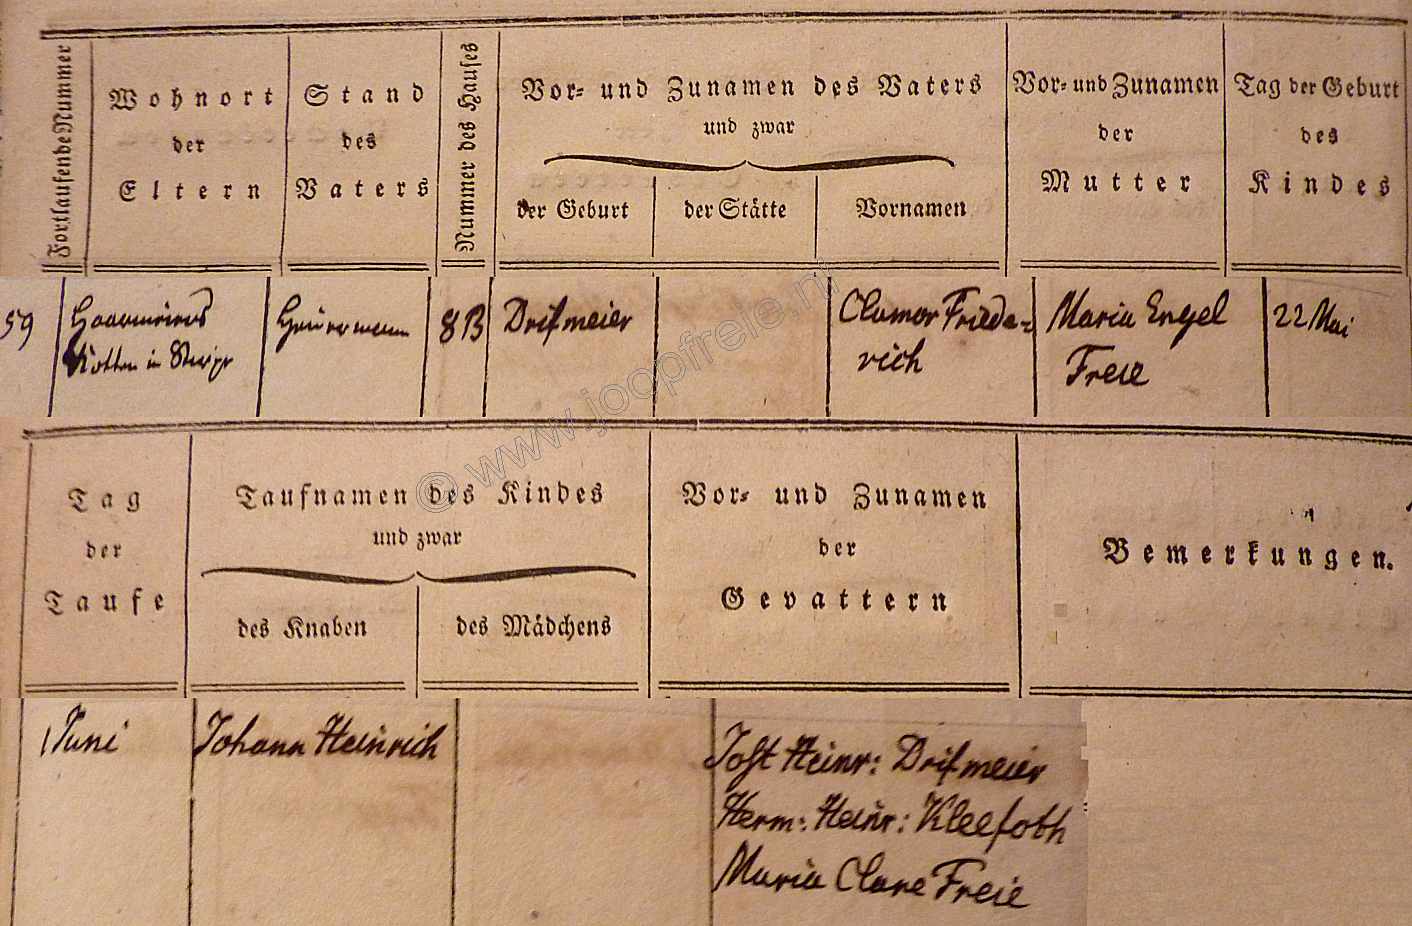 Fortlaufende Nummer
Wohnort
der
Eltern
Stand
des
Vaters
Nummer des Hauses
Vor- und Zunamen des Vaters
und zwar
der Geburt
der Stätte
Vornamen
Vor- und Zunamen
der
Mutter
Tag der Geburt
des
Kindes
59
Kotten in
8B
Drifmeier
Clamor Friede-
rich
Maria Engel
Freie
22 Mai
© www.joopfreie.nl
Tag
der
Taufe
Taufnamen des Kindes
und zwar
des Knaben
des Mädchens
Vor- und Zunamen
der
Gevattern
Bemerkungen.
1 Juni
Johann Heinrich
Jost Heinr: Drifmeier
Herm: Heinr: Kleefoth
Maria Clare Freie